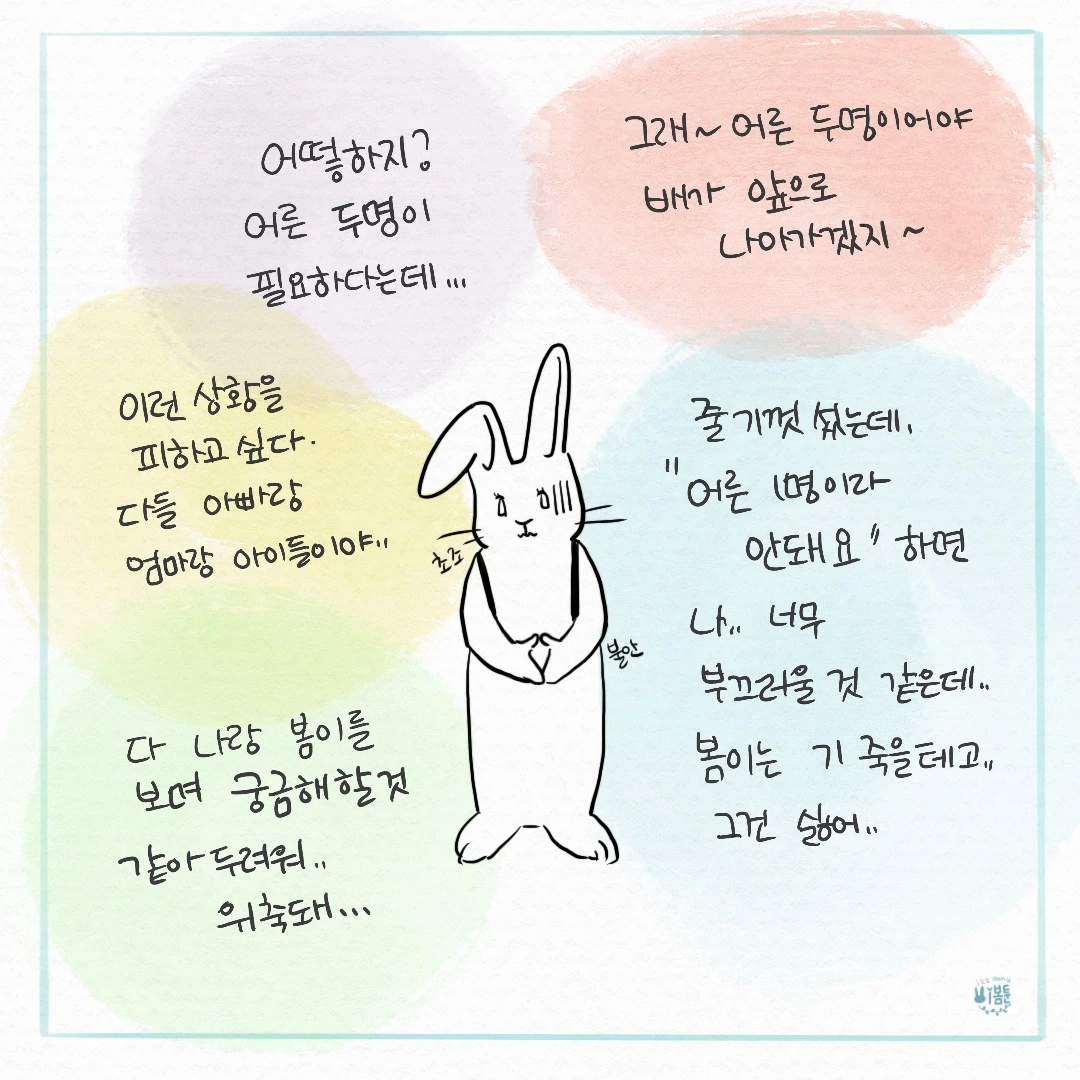 어떻하지?
어른 두명이
필요하다는데...
그래~ 어른 두명이어야
배가 앞으로
나아가겠지~
이런 상황을
피하고 싶다.
다들 아빠랑
엄마랑 아이들이야..
줄 기껏 섰는데,
"어른 1명이라
안돼요" 하면
나.. 너무
부끄러울 것 같은데..
봄이는 기 죽을테고..
그건 싫어..
초조
불안
다 나랑 봄이를
보며 궁금해할것
같아 두려워..
위축돼...